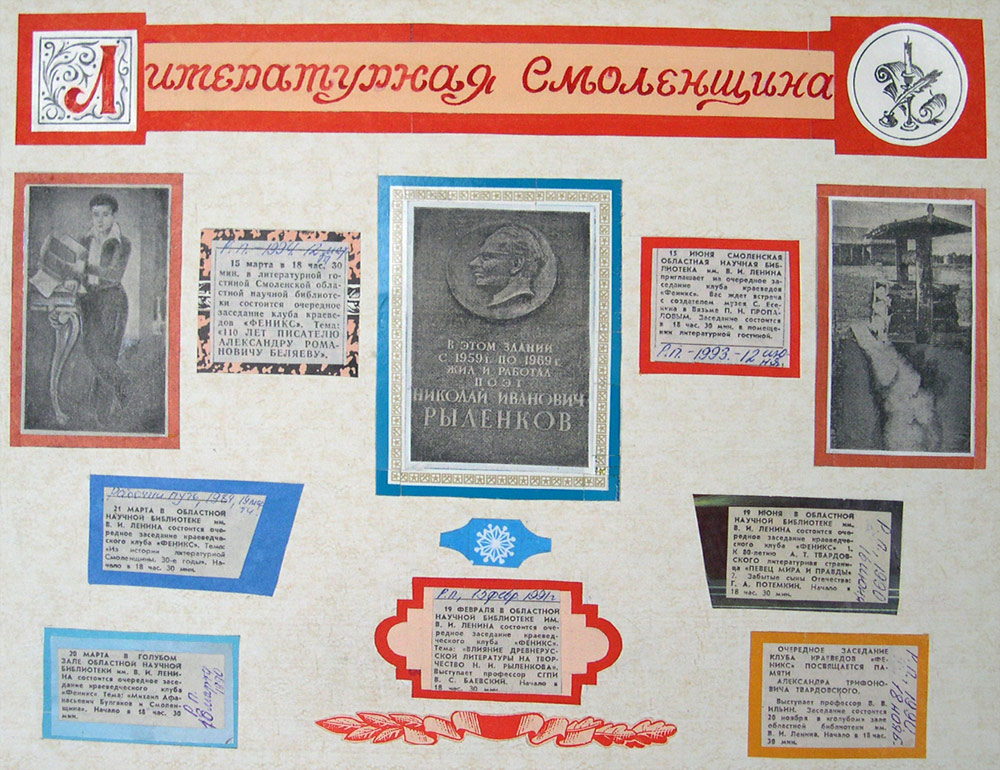 Литературная Смоленщина
Р.П. - 1994. - 12 мар
15 марта в 18 час. 30
мин. в литературной го-
стиной Смоленской област-
ной научной библиоте-
ки состоится очередное
заседание клуба краеве-
дов «ФЕНИКС». Тема:
«110 ЛЕТ ПИСАТЕЛЮ
АЛЕКСАНДРУ РОМА-
НОВИЧУ БЕЛЯЕВУ».
В ЭТОМ ЗДАНИИ
С 1959 г. ПО 1969 г.
ЖИЛ И РАБОТАЛ
ПОЭТ
НИКОЛАЙ ИВАНОВИЧ
РЫЛЕНКОВ
15 ИЮНЯ СМОЛЕНСКАЯ
ОБЛАСТНАЯ НАУЧНАЯ БИБ-
ЛИОТЕКА им. В. И. ЛЕНИНА
приглашает на очередное за-
седание клуба краеведов
«Феникс». Вас ждет встреча
с создателем музея С. Есе-
нина в Вязьме П. Н. ПРОПА-
ЛОВЫМ. Заседание состоится
в 18 час. 30 мин. в помеще-
нии литературной гостиной.
Р.П. - 1993. - 12 ию-
ня.
Рабочий путь, 1989, 19 мар
та
21 МАРТА В ОБЛАСТНОЙ
НАУЧНОЙ БИБЛИОТЕКЕ им.
В. И. ЛЕНИНА состоится оче-
редное заседание краеведче-
ского клуба «ФЕНИКС». Тема:
«Из истории литературной
Смоленщины. 30-е годы». На-
чало в 18 час. 30 мин.
19 ИЮНЯ В ОБЛАСТНОЙ
НАУЧНОЙ БИБЛИОТЕКЕ им.
В. И. ЛЕНИНА состоится оче-
редное заседание краеведче-
ского клуба «ФЕНИКС» 1.
К 80-летию А. Т. ТВАРДОВ-
СКОГО литературная страни-
ца «ПЕВЕЦ МИРА И ПРАВДЫ»
2. Забытые сыны Отечества:
Г. А. ПОТЕМКИН. Начало в
18 час. 30 мин.
Р.П., 1990
июня
Р.П., 15 фев 1991 г.
19 ФЕВРАЛЯ В ОБЛАСТНОЙ
НАУЧНОЙ БИБЛИОТЕКЕ ИМ.
В. И. ЛЕНИНА состоится оче-
редное заседание краевед-
ческого клуба «ФЕНИКС».
Тема: «ВЛИЯНИЕ ДРЕВНЕРУС-
СКОЙ ЛИТЕРАТУРЫ НА ТВОР-
ЧЕСТВО Н. И. РЫЛЕНКОВА».
Выступает профессор СГПИ
В. С. БАЕВСКИЙ. Начало в
18 час. 30 мин.
20 МАРТА В ГОЛУБОМ
ЗАЛЕ ОБЛАСТНОЙ НАУЧНОЙ
БИБЛИОТЕКИ им. В. И. ЛЕНИ-
НА состоится очередное засе-
дание краеведческого клуба
«Феникс» Тема: «Михаил Афа-
насьевич Булгаков и Смолен-
щина». Начало в 18 час. 30
мин.
ОЧЕРЕДНОЕ ЗАСЕДАНИЕ
КЛУБА КРАЕВЕДОВ «ФЕ-
НИКС» ПОСВЯЩАЕТСЯ ПА-
МЯТИ
АЛЕКСАНДРА ТРИФОНО-
ВИЧА ТВАРДОВСКОГО.
Выступает профессор В. В.
ИЛЬИН. Заседание состоится
20 ноября в «голубом» зале
областной библиотеки им.
В. И. Ленина. Начало в 18 час.
30 мин.
Р.П., 1990
18 нояб.